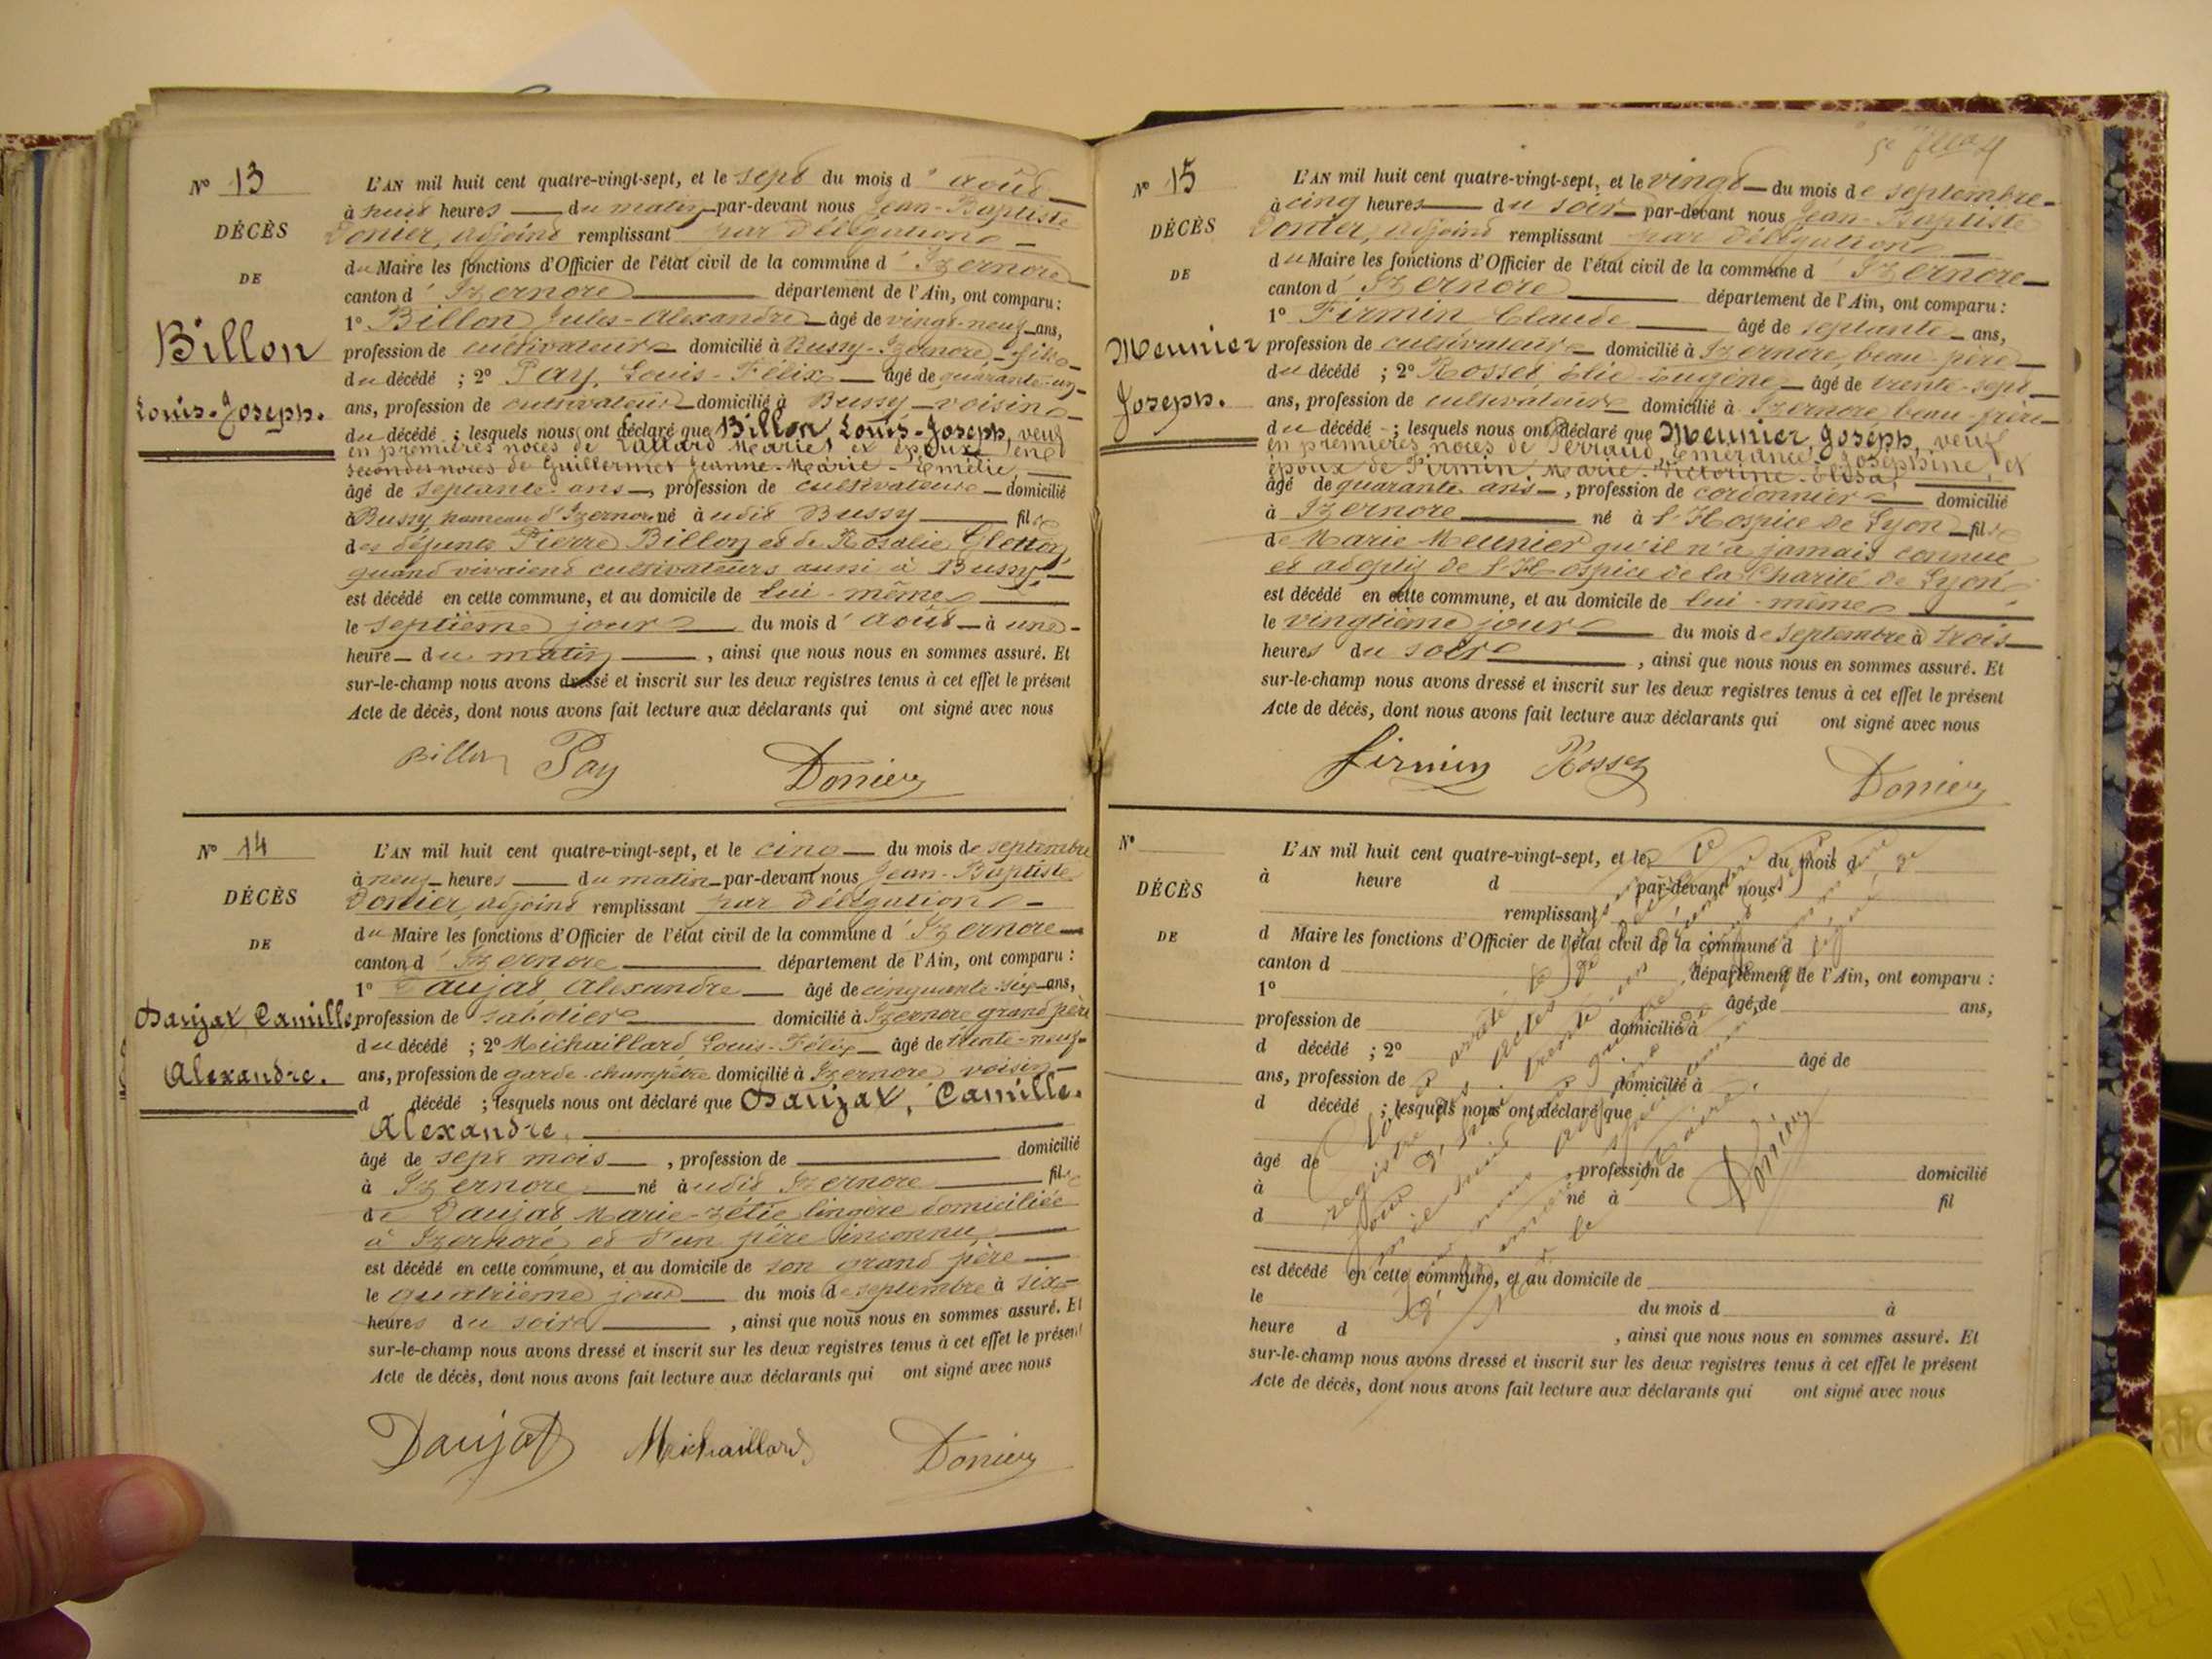 N° 13
DÉCÈS
DE
Billon
Louis-Joseph.
L'AN mil huit cent quatre-vingt-sept, et le sept du mois d'août
à huit heures du matin par-devant nous Jean-Baptiste
Donier, adjoint remplissant par délégation
du Maire les fonctions d'Officier de l'état civil de la commune d'Izernore
canton d'Izernore département de l'Ain, ont comparu :
1° Billon Jules-Alexandre âgé de vingt-neuf ans,
profession de cultivateur domicilié à Bussy-Izernore, fils
du décédé ; 2° Pay, Louis-Félix âgé de quarante-un
ans, profession de cultivateur domicilié à Bussy voisin
du décédé ; lesquels nous ont déclaré que Billon, Louis-Joseph, veuf
en premières noces de Vallard Marie, et époux en
secondes noces de Guillermet Jeanne-Marie-Emélie,
âgé de septante ans, profession de cultivateur domicilié
à Bussy hameau d'Izernore né à udit Bussy fils
des défunts Pierre Billon et de Rosalie
quand vivaient cultivateurs aussi à Bussy,
est décédé en cette commune, et au domicile de lui-même
le septième jour du mois d'août à une
heure du matin, ainsi que nous nous en sommes assuré. Et
sur-le-champ nous avons dressé et inscrit sur les deux registres tenus à cet effet le présent
Acte de décès, dont nous avons fait lecture aux déclarants qui ont signé avec nous
Billon Pay Donier
N° 14
DÉCÈS
DE
Daujat Camille
Alexandre.
L'AN mil huit cent quatre-vingt-sept, et le cinq du mois de septembre
à neuf heures du matin par-devant nous Jean-Baptiste
Donier, adjoint remplissant par délégation
du Maire les fonctions d'Officier de l'état civil de la commune d'Izernore
canton d'Izernore département de l'Ain, ont comparu :
1° Daujat Alexandre âgé de cinquante-six ans,
profession de sabotier domicilié à Izernore grand père
du décédé ; 2° Michaillard, Louis-Félix âgé de trente-neuf
ans, profession de garde-champêtre domicilié à Izernore, voisin
d décédé ; lesquels nous ont déclaré que Daujat, Camille-
Alexandre,
âgé de sept mois, profession de domicilié
à Izernore né à udit Izernore fils
de Daujat Marie-Zélie lingère domiciliée
à Izernore et d'un père inconnu,
est décédé en cette commune, et au domicile de son grand père
le quatrième jour du mois de septembre à six
heures du soir, ainsi que nous nous en sommes assuré. Et
sur-le-champ nous avons dressé et inscrit sur les deux registres tenus à cet effet le présent
Acte de décès, dont nous avons fait lecture aux déclarants qui ont signé avec nous
Daujat Michaillard Donier
N° 15
DÉCÈS
DE
Meunier
Joseph.
L'AN mil huit cent quatre-vingt-sept, et le vingt du mois de septembre
à cinq heures du soir par-devant nous Jean-Baptiste
Donier, adjoint remplissant par délégation
du Maire les fonctions d'Officier de l'état civil de la commune d'Izernore
canton d'Izernore département de l'Ain, ont comparu :
1° Firmin Claude âgé de septante ans,
profession de cultivateur domicilié à Izernore, beau-père
du décédé ; 2° Rosset, Elie-Eugène âgé de trente-sept
ans, profession de cultivateur domicilié à Izernore, beau-frère
du décédé ; lesquels nous ont déclaré que Meunier, Joseph, veuf
en premières noces de Perraud, Emérance, Joséphine, et
époux de Firmin, Marie-Victorine-Elisa,
âgé de quarante ans, profession de cordonnier domicilié
à Izernore né à l'Hospice de Lyon fils
de Marie Meunier qu'il n'a jamais connue
et adoptif de l'Hospice de la Charité de Lyon,
est décédé en cette commune, et au domicile de lui-même
le vingtième jour du mois de septembre à trois
heures du soir, ainsi que nous nous en sommes assuré. Et
sur-le-champ nous avons dressé et inscrit sur les deux registres tenus à cet effet le présent
Acte de décès, dont nous avons fait lecture aux déclarants qui ont signé avec nous
Firmin Rosset Donier
N°
DÉCÈS
DE
L'AN mil huit cent quatre-vingt-sept, et le du mois d
à heure d par-devant nous
remplissant
d Maire les fonctions d'Officier de l'état civil de la commune d
canton d département de l'Ain, ont comparu :
1° âgé de ans,
profession de domicilié à
d décédé ; 2° âgé de
ans, profession de domicilié à
d décédé ; lesquels nous ont déclaré que
âgé de profession de domicilié
à né à fil
d
est décédé en cette commune, et au domicile de
le du mois d à
heure d , ainsi que nous nous en sommes assuré. Et
sur-le-champ nous avons dressé et inscrit sur les deux registres tenus à cet effet le présent
Acte de décès, dont nous avons fait lecture aux déclarants qui ont signé avec nous
Donier